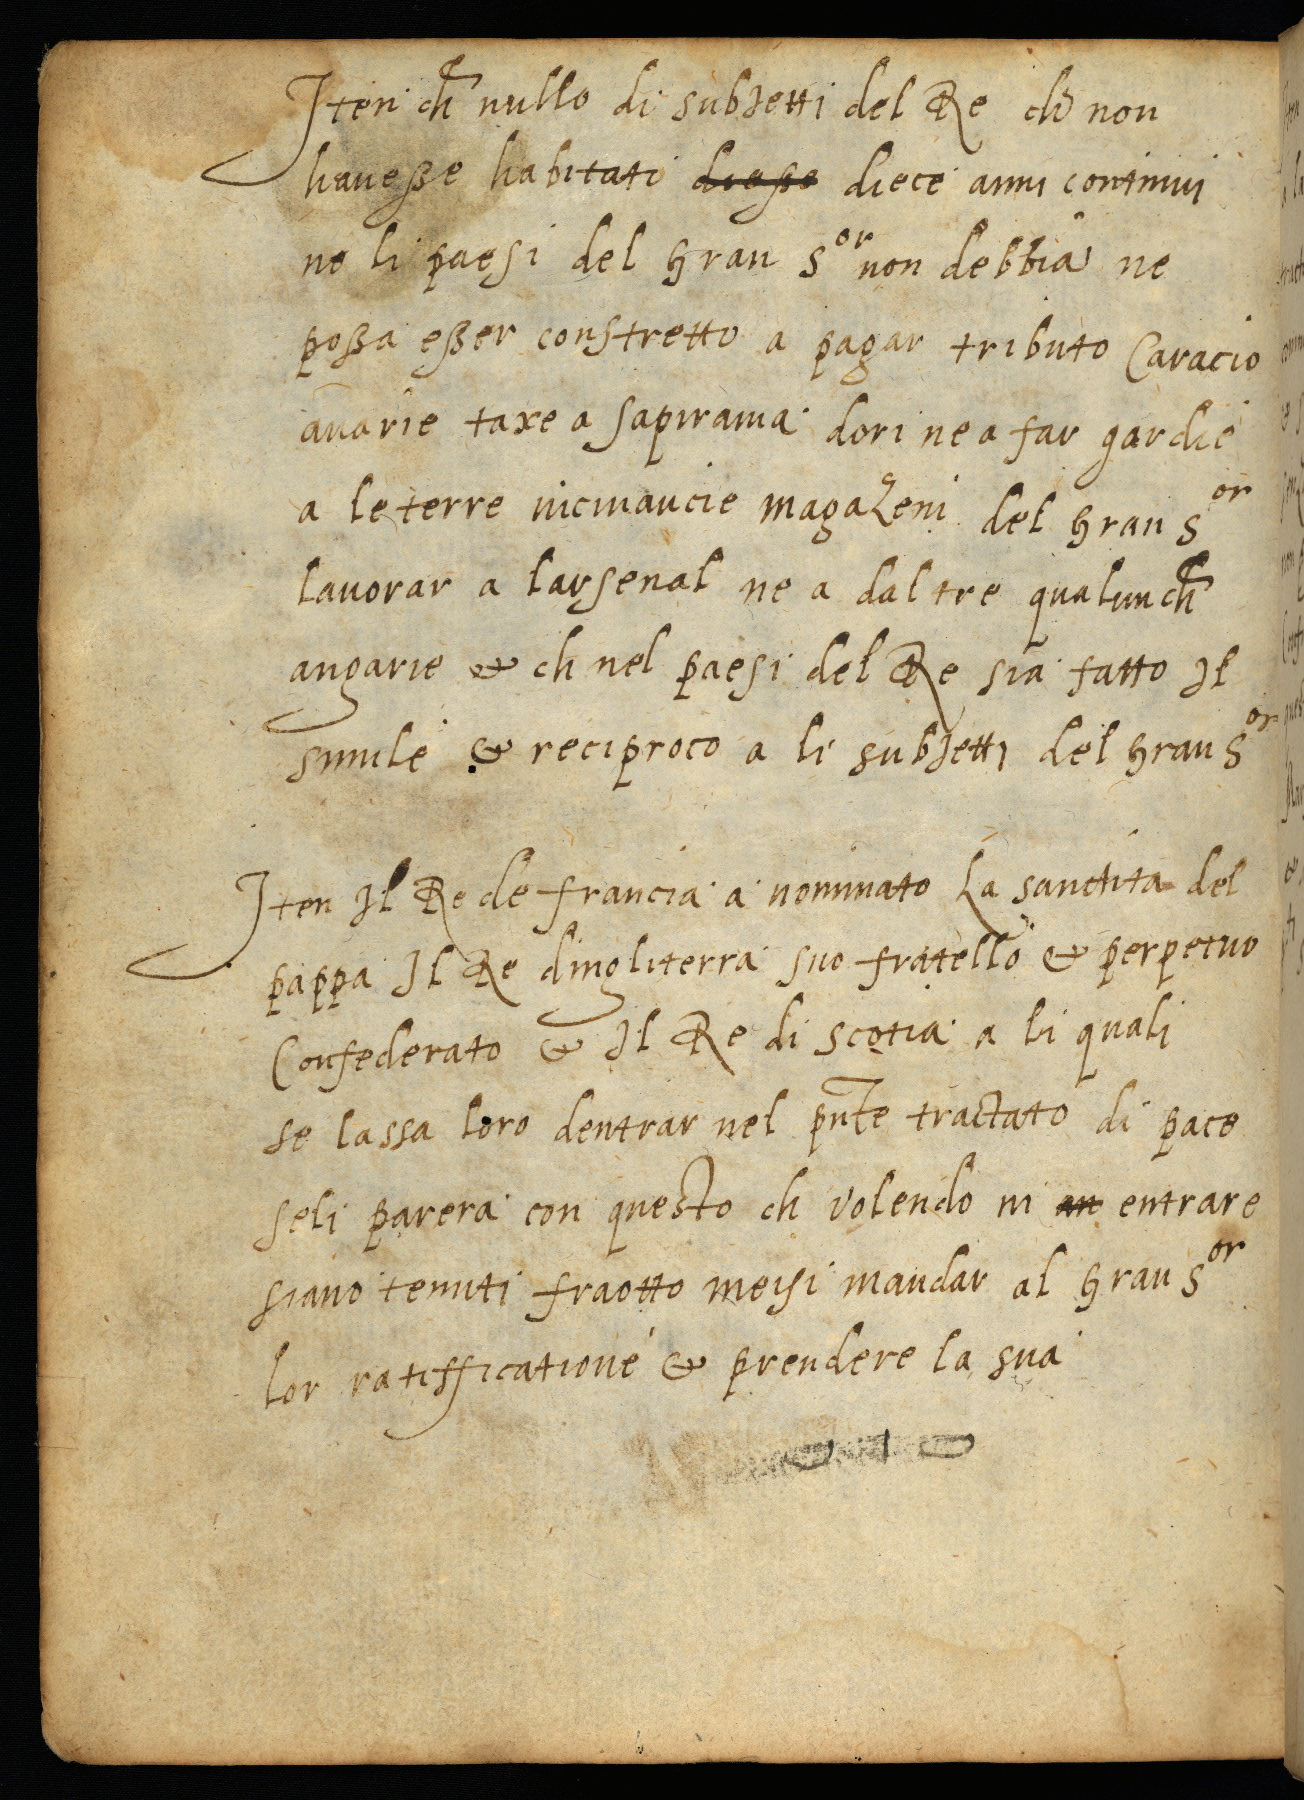 Iten ch nullo di subJetti del Re ch non
havesse habitati diesse diece anni continui
ne li paesi del Gran S.or non debbia ne
possa esser constretto a pagar tributo Caracio
avarie taxe o sapirama dori ne a far gardie
a le terre vicinancie magazeni del Gran S.or
lavorar a larsenal ne a daltre qualunch
angarie & ch nel paesi del Re sia fatto Il
simile & reciproco a li subJetti del Gran S.or
Iten Il Re de francia a nominato La sanctita del
pappa Il Re dingliterra suo fratello & perpetuo
Confederato & Il Re di scotia a li quali
se lassa loro dentrar nel pnte tractato di pace
seli parera con questo ch volendo ni entrare
siano tenuti fra otto meisi mandar al Gran S.or
lor ratifficatione & prendere la sua